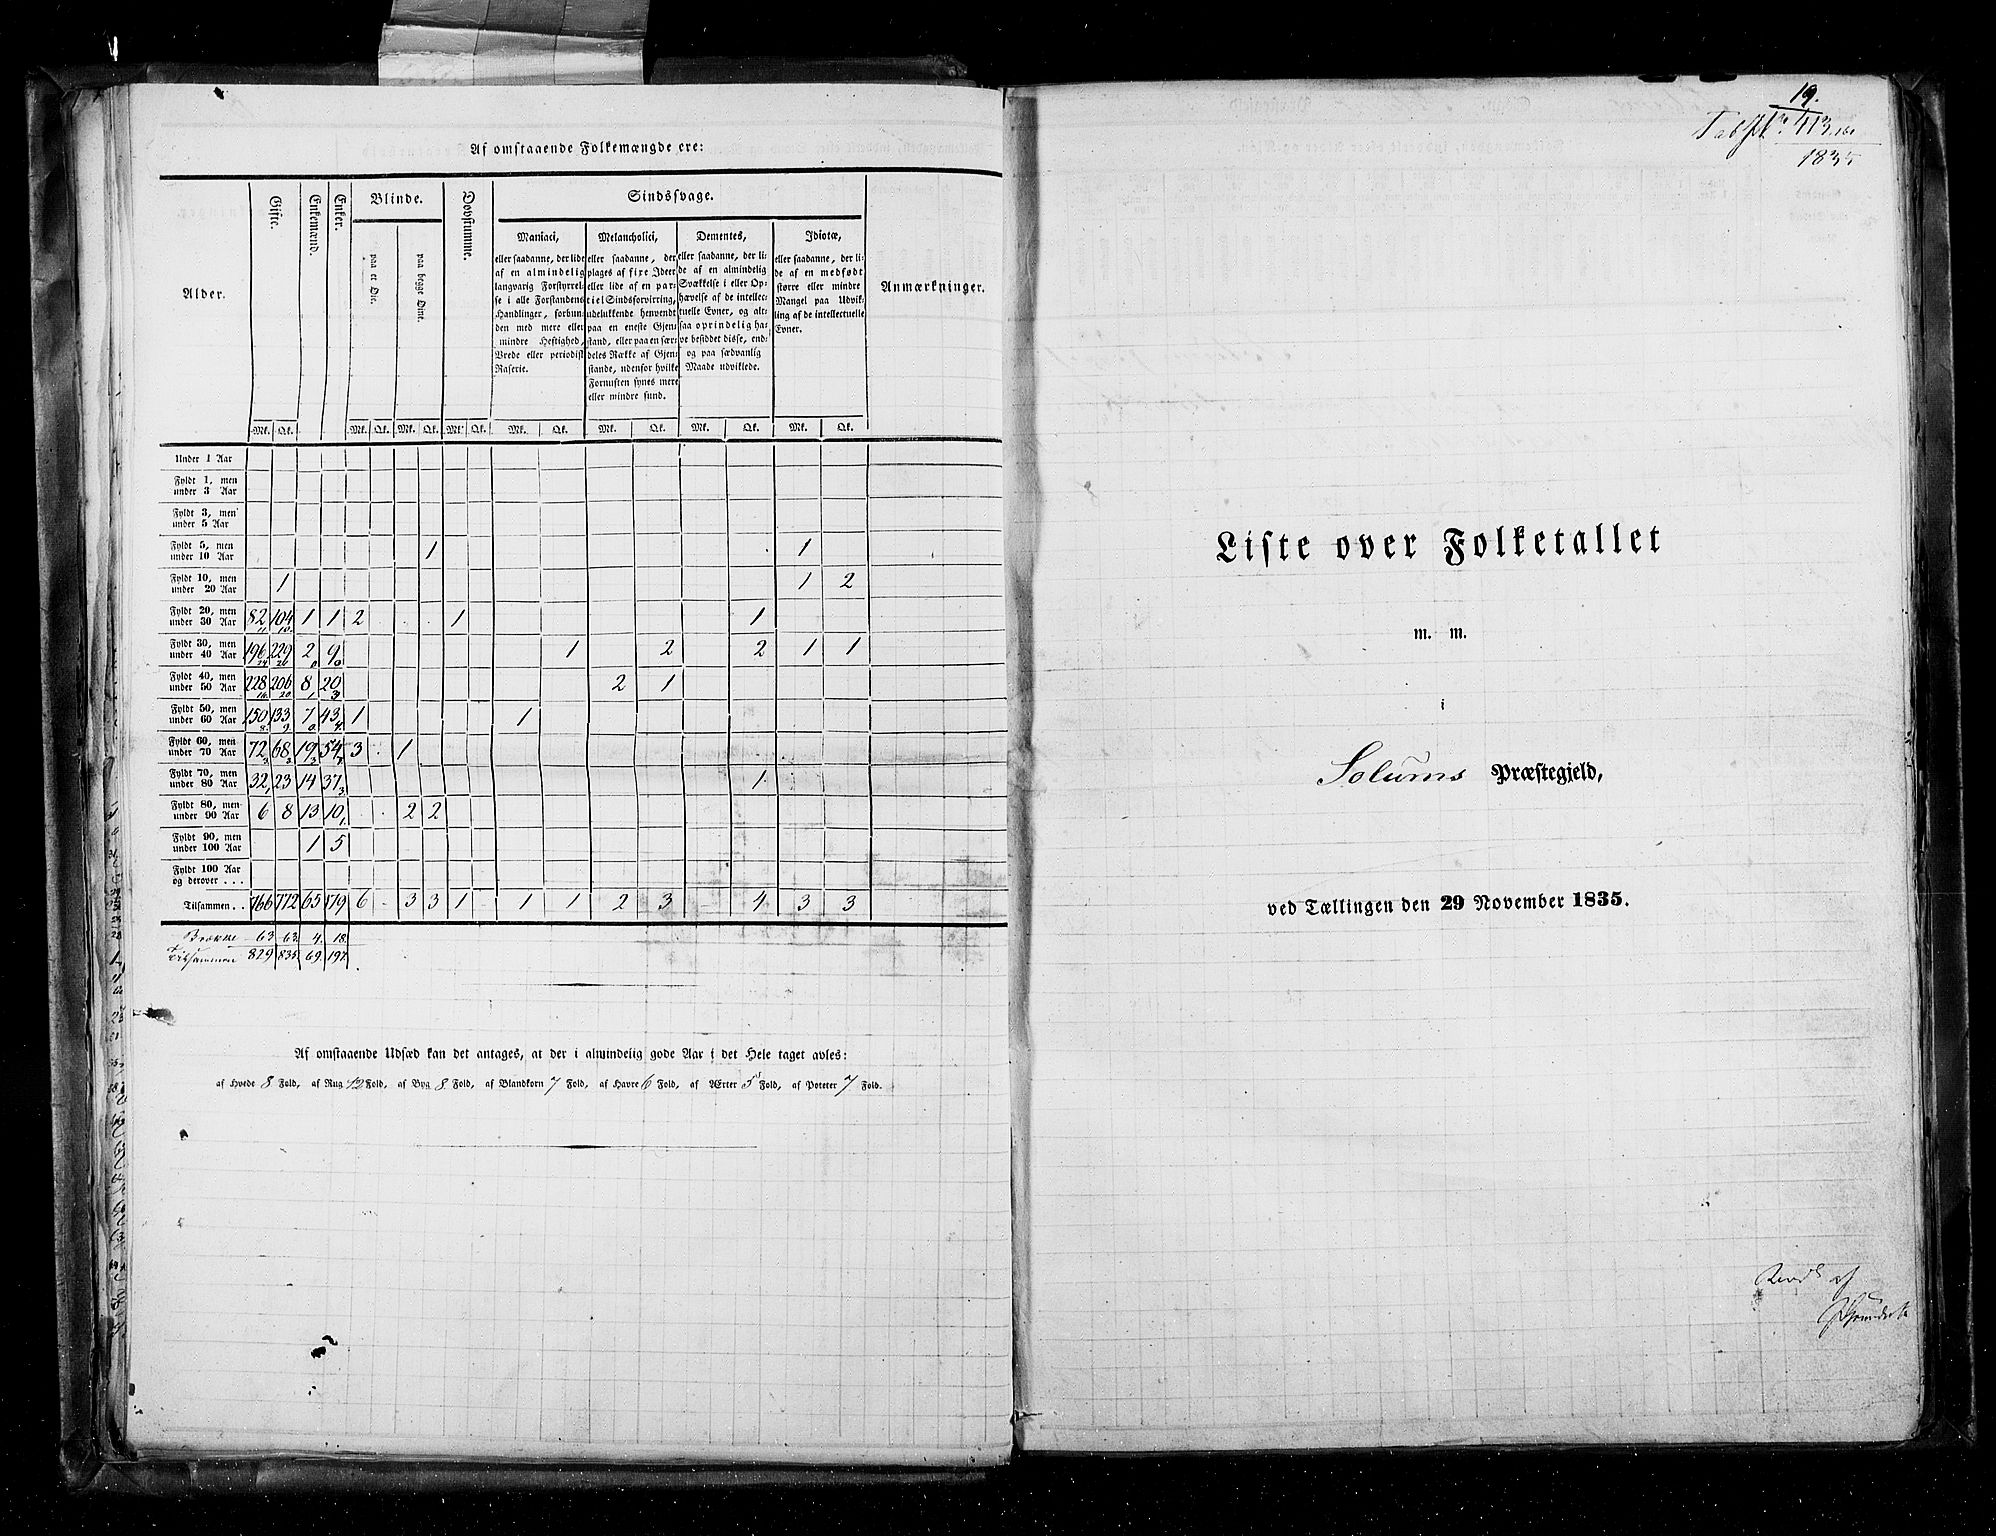 Af omstaaende Folkemængde ere:
Alder.
Gifte.
Enkemænd.
Enker.
Blinde.
paa et Øie.
paa begge Øine.
Dovstumme.
Sindssvage.
Maniaci,
eller saadanne, der lide
af en almindelig
langvarig Forstyrrel-
se i alle Forstandens
Handlinger, forbun-
den med mere eller
mindre Heftighed,
Vrede eller periodisk
Raserie.
Melancholici,
eller saadanne, der
plages af fixe Ideer
eller lide af en par-
tiel Sindsforvirring,
udelukkende henvendt
paa en eneste Gjen-
stand, eller paa en sær-
deles Række af Gjen-
stande, udenfor hvilke
Fornuften synes mere
eller mindre sund.
Dementes,
eller saadanne, der li-
de af en almindelig
Svækkelse i eller Op-
hævelse af de intellec-
tuelle Evner, og alt-
saa oprindelig ha-
ve besiddet disse, end-
og paa sædvanlig
Maade udviklede.
Idiotæ,
eller saadanne, der li-
de af en medfødt
større eller mindre
Mangel paa Udvik-
ling af de intellectuelle
Evner.
Anmærkninger.
Mk. Qk. Mk. Qk. Mk. Qk. Mk. Qk. Mk. Qk. Mk. Qk. Mk. Qk. Mk. Qk.
Under 1 Aar
Fyldt 1, men
under 3 Aar
Fyldt 3, men
under 5 Aar
Fyldt 5, men
under 10 Aar 1 1
Fyldt 10, men
under 20 Aar 1 1 2
Fyldt 20, men
under 30 Aar 82 104 1 1 2 1 1
11. 10.
Fyldt 30, men
under 40 Aar 196 229 2 9 1 2 2 1 1
24 26 0 0
Fyldt 40, men
under 50 Aar 228 206 8 20 2 1
16. 20 1 3
Fyldt 50, men
under 60 Aar 150 133 7 43 1 1
8. 9. 0. 4.
Fyldt 60, men
under 70 Aar 72 68 19 54 3 1
3 3
Fyldt 70, men
under 80 Aar 32 23 14 37 1
1 3
Fyldt 80, men
under 90 Aar 6 8 13 10 2 2
1.
Fyldt 90, men
under 100 Aar 1 5
Fyldt 100 Aar
og derover . . .
Tilsammen . . 766 772 65 179 6 - 3 3 1 - 1 1 2 3 - 4 3 3
63 63 4. 18.
Tilsammen 829 835 69. 197.
Af omstaaende Udsæd kan det antages, at der i almindelig gode Aar i det Hele taget avles:
af Hvede 8 Fold, af Rug 12 Fold, af Byg 8 Fold, af Blandkorn 7 Fold, af Havre 6 Fold, af Ærter 5 Fold, af Poteter 7 Fold.
19.
1835
Liste over Folketallet
m. m.
i
Solums Præstegjeld,
ved Tællingen den 29 November 1835.
af